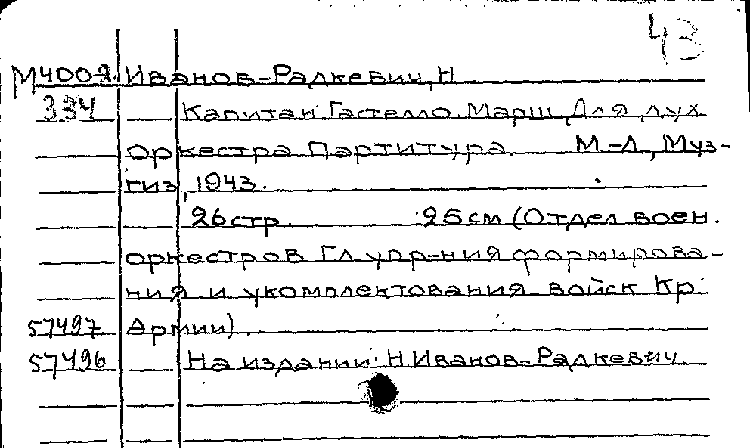 43
М4002 Иванов-Радкевич, Н
334 Капитан Гастелло. Марш. Для дух
оркестра Партитура. М.-Л., Муз-
гиз, 1943.
26 стр. 25 см (Отдел воен.
оркестров Гл упр-ния формирова-
ния и укомплектования войск Кр.
57497 Армии).
57496 На издании: Н Иванов-Радкевич